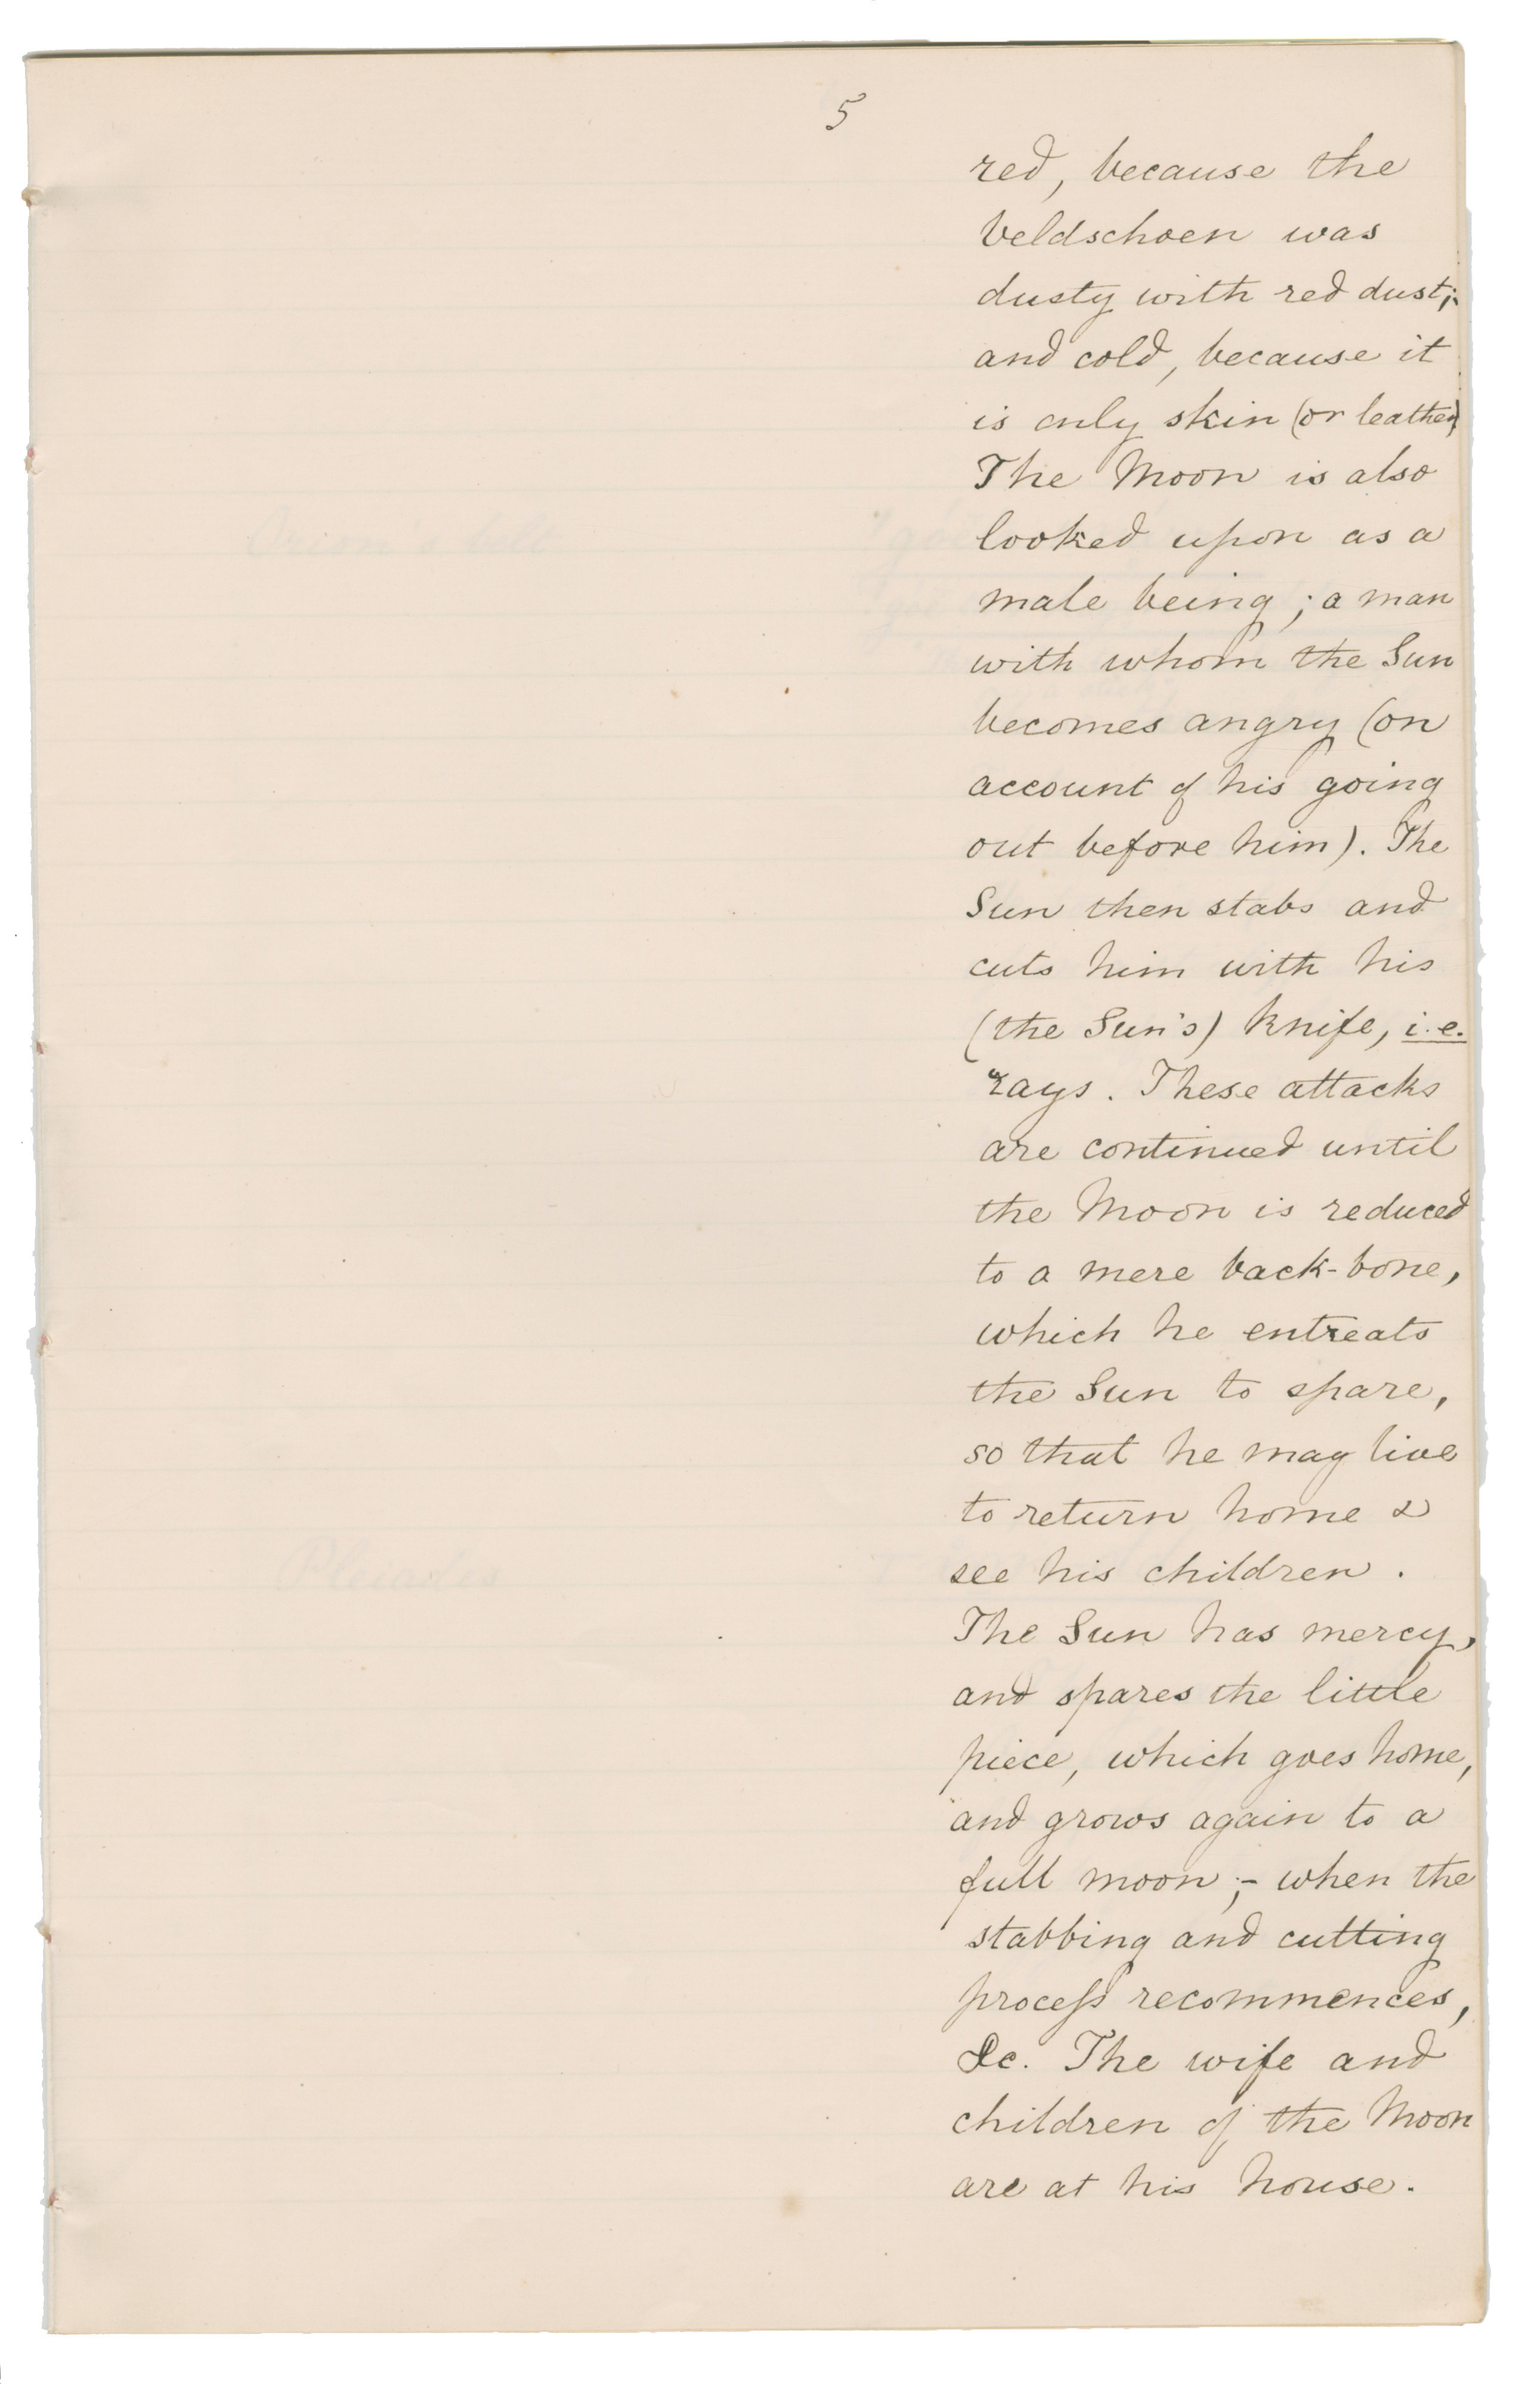 5
red, because the
veldschoen was
dusty with red dust;
and cold, because it
is only skin (or leather)
The Moon is also
looked upon as a
male being; a man
with whom the Sun
becomes angry (on
account of his going
out before him). The
Sun then stabs and
cuts him with his
(the Sun's) knife, i.e.
rays. These attacks
are continued until
the Moon is reduced
to a mere back-bone,
which he entreats
the Sun to spare,
so that he may live
to return home &
see his children.
The Sun has mercy,
and spares the little
piece, which goes home,
and grows again to a
full moon;- when the
stabbing and cutting
process recommences,
&c. The wife and
children of the Moon
are at his house.